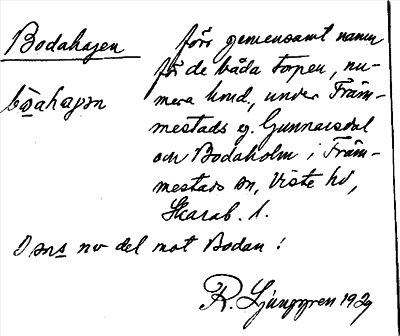 Bodahagen förr gemensamt namn
för de båda torpen, nu-
bo̱ahagən mera hmd., under Främ-
mestads g. Gunnarsdal
och Bodaholm i Främ-
mestads sn, Viste hd,
Skarab. l.
D sns nv del mot Bodan!
R. Ljunggren 1929